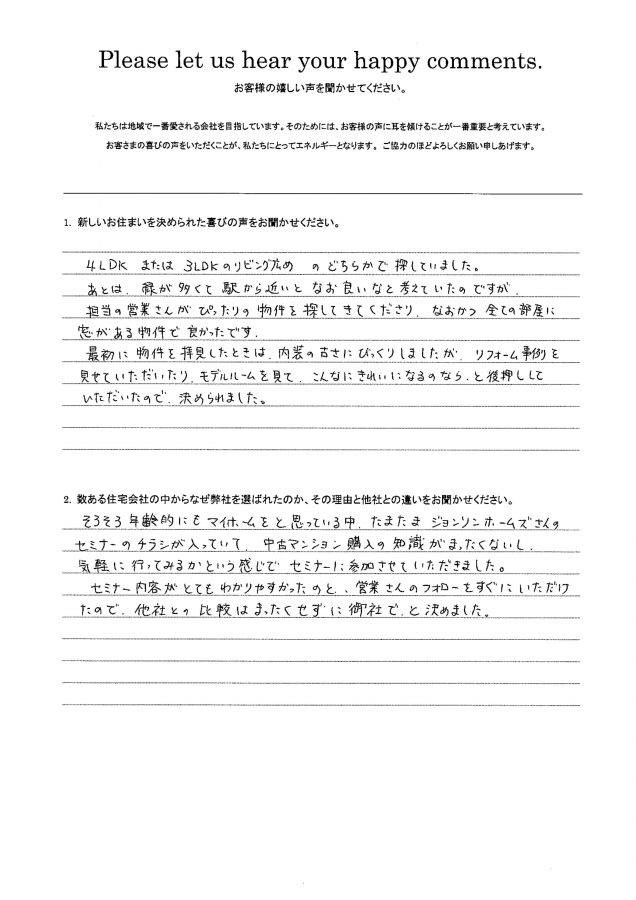 Please let us hear your happy comments.
お客様の嬉しい声を聞かせてください。
私たちは地域で一番愛される会社を目指しています。そのためには、お客様の声に耳を傾けることが一番重要と考えています。
お客さまの喜びの声をいただくことが、私たちにとってエネルギーとなります。ご協力のほどよろしくお願い申しあげます。
1. 新しいお住まいを決められた喜びの声をお聞かせください。
4LDK または 3LDKのリビング広め のどちらかで探していました。
あとは、緑が多くて駅から近いとなお良いなと考えていたのですが、
担当の営業さんがぴったりの物件を探してきてくださり、なおかつ全ての部屋に
窓がある物件で良かったです。
最初に物件を拝見したときは、内装の古さにびっくりしましたが、リフォーム事例を
見せていただいたり、モデルルームを見て、こんなにきれいになるのなら、と後押しして
いただいたので、決められました。
2. 数ある住宅会社の中からなぜ弊社を選ばれたのか、その理由と他社との違いをお聞かせください。
そろそろ年齢的にもマイホームをと思っている中、たまたまジョンソンホームズさんの
セミナーのチラシが入っていて、中古マンション購入の知識がまったくないし、
気軽に行ってみるかという感じでセミナーに参加させていただきました。
セミナー内容がとてもわかりやすかったのと、、営業さんのフォローをすぐにいただけ
たので、他社との比較はまったくせずに御社で、と決めました。